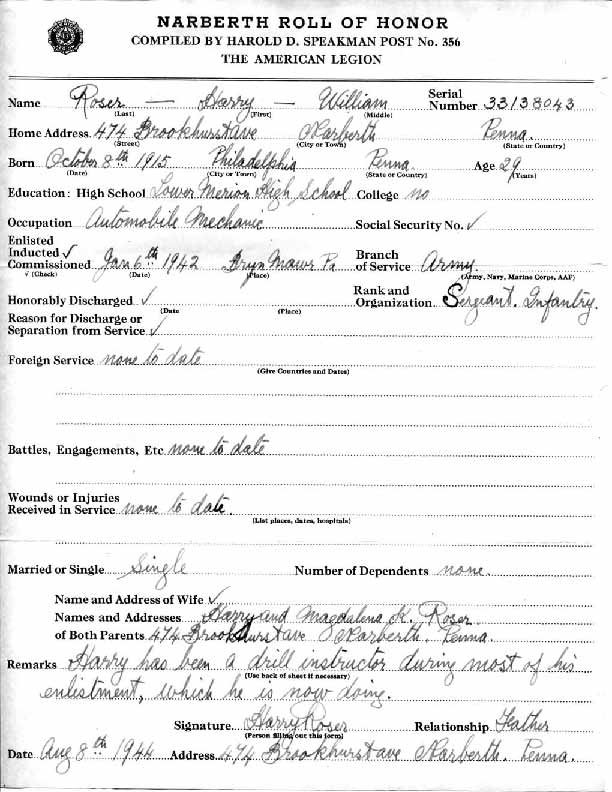 NARBERTH ROLL OF HONOR
COMPILED BY HAROLD D. SPEAKMAN POST No. 356
THE AMERICAN LEGION
Name Roser — Harry — William Serial Number 33138043
(Last) (First) (Middle)
Home Address 474 Brookhurst ave Narberth Penna.
(Street) (City or Town) (State or Country)
Born October 8th 1915 Philadelphia Penna. Age 29
(Date) (City or Town) (State or Country) (Years)
Education: High School Lower Merion High School College no
Occupation Automobile Mechanic Social Security No. ✓
Enlisted
Inducted ✓
Commissioned Jan 6th 1942 Bryn Mawr Pa Branch of Service Army.
√ (Check) (Date) (Place) (Army, Navy, Marine Corps, AAF)
Honorably Discharged ✓ Rank and Organization Sergeant. Infantry.
(Date (Place)
Reason for Discharge or
Separation from Service ✓
Foreign Service none to date
(Give Countries and Dates)
Battles, Engagements, Etc none to date
Wounds or Injuries
Received in Service none to date.
(List places, dates, hospitals)
Married or Single Single Number of Dependents none.
Name and Address of Wife ✓
Names and Addresses Harry and Magdalena K. Roser
of Both Parents 474 Brookhurst ave Narberth. Penna.
Remarks Harry has been a drill instructor during most of his
(Use back of sheet if necessary)
enlistment, which he is now doing.
Signature Harry Roser Relationship Father
(Person filling out this form)
Date Aug 8th 1944 Address 474 Brookhurst ave Narberth. Penna.